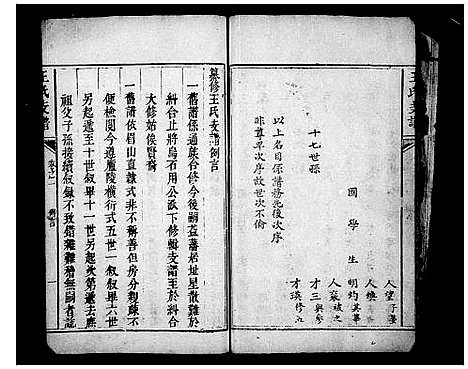 人望子蓬
人纁
國學生 明灼其華
人寀祓之
十七世孫 才三與參
才瑛修五
以上名目係譜務先後次序
非尊卑次序故世次不倫
王氏支譜
纂修王氏支譜例言
一舊譜係通族合修今後嗣益蕃居址星散難於
糾合止將烏石用公派下修輯支譜至於糾合
大修始俟賢裔
一舊譜依眉山直隸式非不稱善但房分親疎不
便檢閱今遵廬陵橫行式五世一叙叙畢六世
另起遞至十世叙畢十一世另起次第遞去庶
祖父子孫接續叙錄不致錯雜難稽無嗣者註
王氏支譜
卷首 例言 一